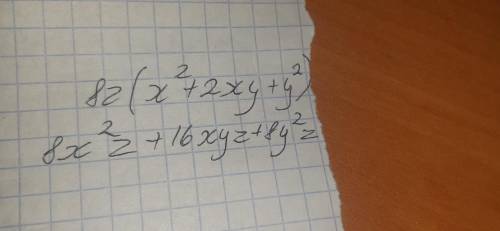 8z(x²+2xy+y²)
8x²z+16xyz+8y²z